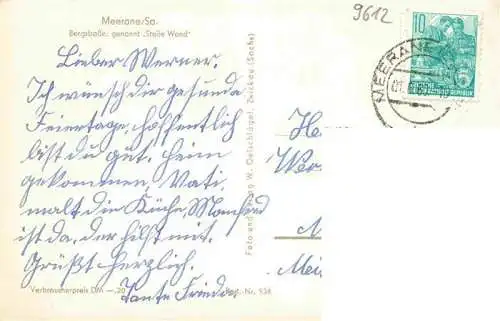 9612
Meerane/Sa.
Bergstraße, genannt „Steile Wand"
10
MEERANE
Lieber Werner.
Ich wünsch dir gesunde
Feiertage, hoffentlich
bist du gut heim
gekommen, Vati
malt die Küche, Manfred
ist da, der hilft mit.
Grüßt herzlich.
Tante Frieda
Foto und Verlag W. Oelschlägel, Zwickau (Sachs)
Verbraucherpreis DM —.20
Best.-Nr. 934
He
Wer
M
Mei